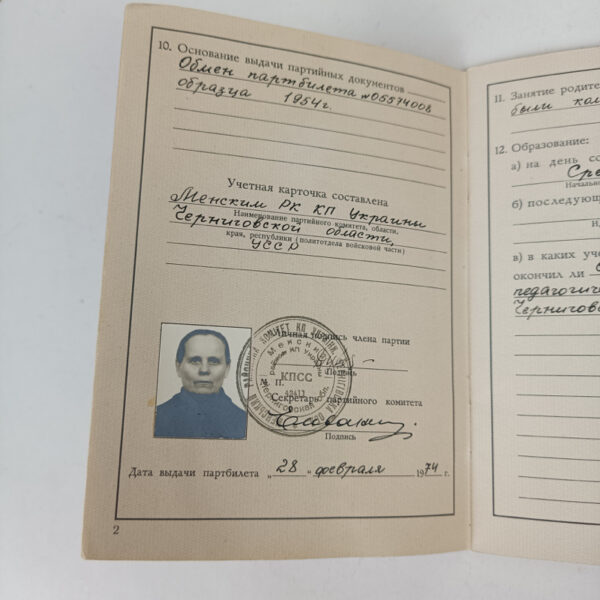 10. Основание выдачи партийных документов
Обмен партбилета № 05574008
образца 1954г.
Учетная карточка составлена
Менским РК КП Украины
Наименование партийного комитета, области,
Черниговской области,
края, республики (политотдела войсковой части)
УССР
Личная подпись члена партии
Подпись
М. П.
КПСС
Секретарь партийного комитета
Подпись
Дата выдачи партбилета „28“ февраля 1974 г.
2
11. Занятие родите
были
12. Образование:
а) на день со
Сре
Начально
б) последующ
в) в каких уче
окончил ли
педагогич
Чернигов